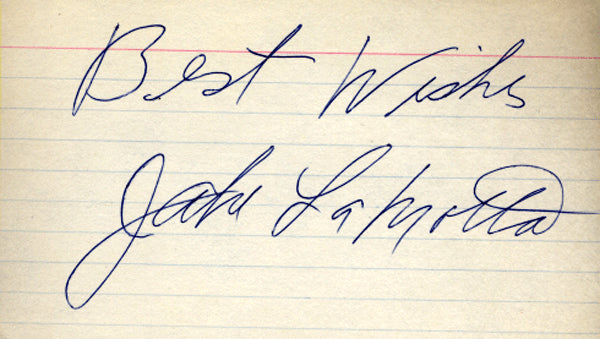 Best Wishes
Jake LaMotta